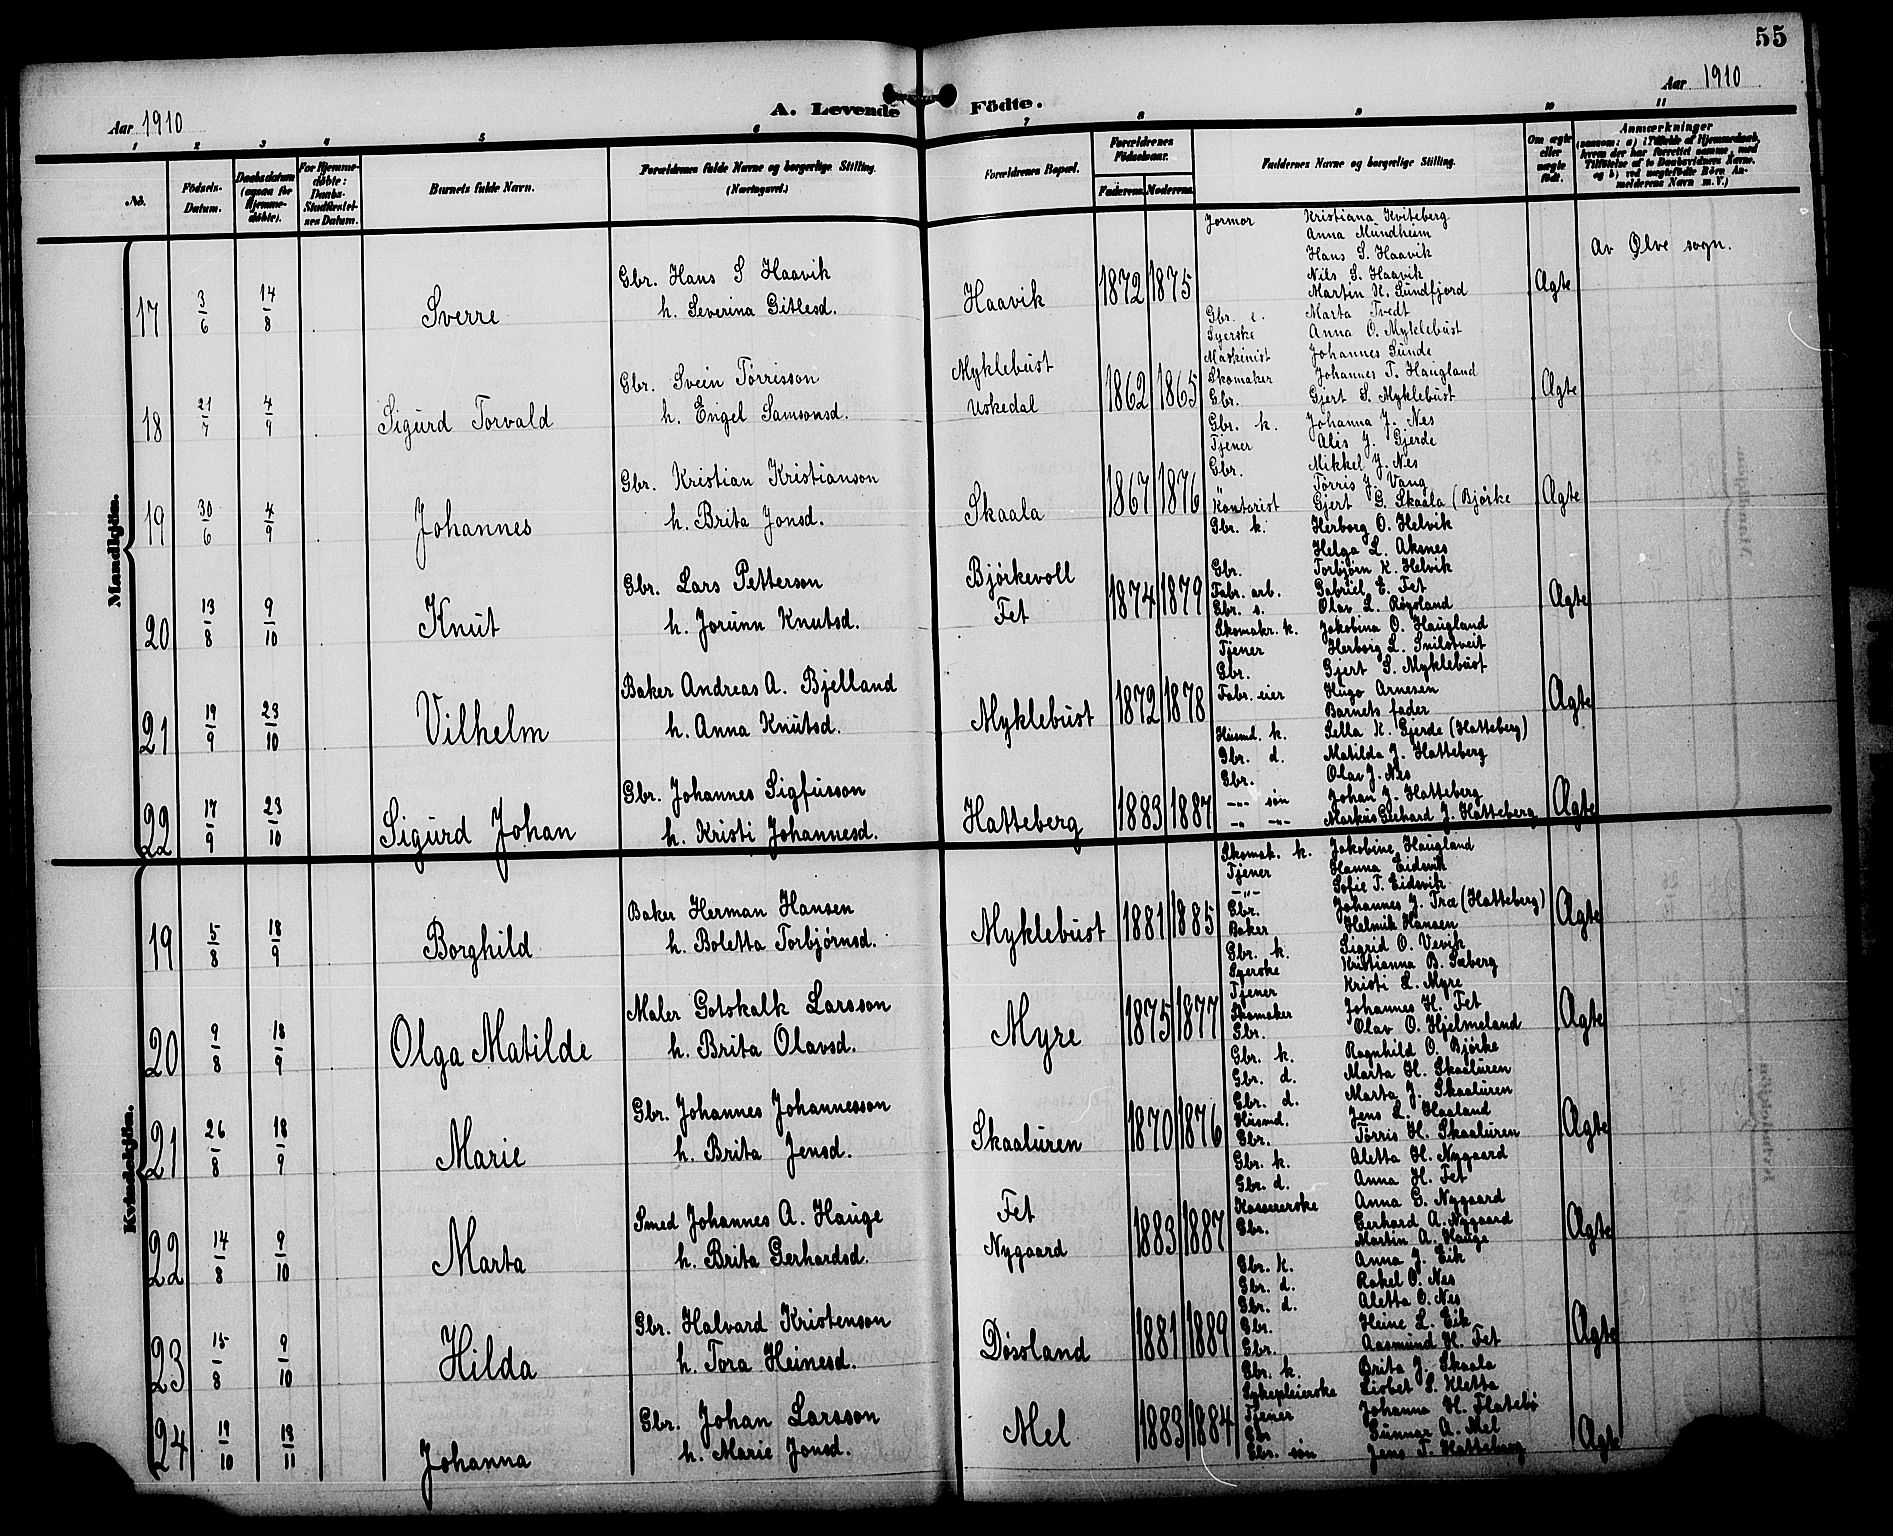 55
Aar 1910
A. Levende Födte.
Aar 1910
1 2 3 4 5 6 7 8 9 10 11
No.
Födsels-Datum.
Daabsdatum (ogsaa for Hjemmedöbte).
For Hjemmedöbte: Daabs-Stadfæstelses Datum.
Barnets fulde Navn.
Forældrenes fulde Navne og borgerlige Stilling. (Næringsvei.)
Forældrenes Bopæl.
Forældrenes Födselsaar.
Faderens. Moderens.
Faddernes Navne og borgerlige Stilling.
Om ægte eller uægte födt.
Anmærkninger
Mandkjön.
17 3/6 14/8 Sverre
Gbr. Hans S Haavik
h. Severina Gitlesd.
Haavik 1872 1875
Jormor Kristiana Kviteberg
Anna Mundheim
Hans S. Haavik
Nils S. Haavik
Martin N. Sundfjord
Ægte
Av Ølve sogn.
18 21/7 4/9 Sigurd Torvald
Gbr. Svein Tørrisson
h. Engel Samsonsd.
Myklebust
Uskedal
1862 1865
Gbr. e. Marta Tvedt
Syerske Anna O. Myklebust
Maskinist Johannes Sunde
Skomaker Johannes T. Haugland
Gbr. Gjert S. Myklebust
Ægte
19 30/6 4/9 Johannes
Gbr. Kristian Kristianson
h. Brita Jonsd.
Skaala 1867 1876
Gbr. k. Johanna J. Nes
Tjener Alis J. Gjerde
Gbr. Mikkel J. Nes
" Tørris J. Vang
Kontorist Gjert G. Skaala (Bjørke
Ægte
20 13/8 9/10 Knut
Gbr. Lars Petterson
h. Jorunn Knutsd.
Bjørkevoll
Fet
1874 1879
Gbr. k. Herborg O. Helvik
Helga L. Aksnes
Gbr. Torbjørn K. Helvik
Fabr. arb. Gabriel E. Fet
Gbr. s. Olav L. Røysland
Ægte
21 19/9 23/10 Vilhelm
Baker Andreas A. Bjelland
h. Anna Knutsd.
Myklebust 1872 1878
Skomakr. k. Jakobina O. Haugland
Tjener Herborg L. Snilstveit
Gbr. Gjert S. Myklebust
Fabr. eier Hugo Arnesen
Barnets fader
Ægte
22 17/9 23/10 Sigurd Johan
Gbr. Johannes Sigfusson
h. Kristi Johannesd.
Hatteberg 1883 1887
Husmd. k. Sella K. Gjerde (Hatteberg)
Gbr. d. Matilda J. Hatteberg
Gbr. Olav J. Nes
–"– søn Johan J. Hatteberg
–"– –"– Markus Gerhard J. Hatteberg
Ægte
Kvindekjön.
19 5/8 18/9 Borghild
Baker Herman Hansen
h. Boletta Torbjørnsd.
Myklebust 1881 1885
Skomak. k. Jakobine Haugland
Tjener Hanna Eidsvik
–"– Sofie T. Eidsvik
Gbr. Johannes J. Træ (Hatteberg)
Baker Helmik Hansen
Ægte
20 9/8 18/9 Olga Matilde
Maler Gotskalk Larsson
h. Brita Olavsd.
Myre 1875 1877
Gbr. k. Sigrid O. Vevik
Syerske Kristianna B. Sæberg
Tjener Kristi L. Myre
Skomaker Johannes H. Fet
Gbr. Olav O. Hjelmeland
Ægte
21 26/8 18/9 Marie
Gbr. Johannes Johannesson
h. Brita Jensd.
Skaaluren 1870 1876
Gbr. k. Ragnhild O. Bjørke
Gbr. d. Marta H. Skaaluren
Gbr. d. Marta J. Skaaluren
Husmd. Jens L. Haaland
Gbr. Tørris H. Skaaluren
Ægte
22 14/8 9/10 Marta
Smed Johannes A. Hauge
h. Brita Gerhardsd.
Fet
Nygaard
1883 1887
Gbr. k. Aletta H. Nygaard
Gbr. d. Anna H. Fet
Kassererske Anna G. Nygaard
Gbr. Gerhard A. Nygaard
Martin A. Hauge
Ægte
23 15/8 9/10 Hilda
Gbr. Halvard Kristenson
h. Tora Heinesd.
Døssland 1881 1889
Gbr. k. Anna J. Eik
Gbr. d. Rakel O. Nes
Gbr. d. Aletta O. Nes
Gbr. Heine L. Eik
Gbr. Aasmund H. Fet
Ægte
24 19/10 13/11 Johanna
Gbr. Johan Larsson
h. Marie Jonsd.
Mel 1883 1884
Gbr. k. Brita J. Skaala
Sykepleierske Lisbet S. Kletta
Tjener Johanna H. Flatebø
Gbr Gunnar A. Mel
Gbr. søn Jens T. Hatteberg
Ægte